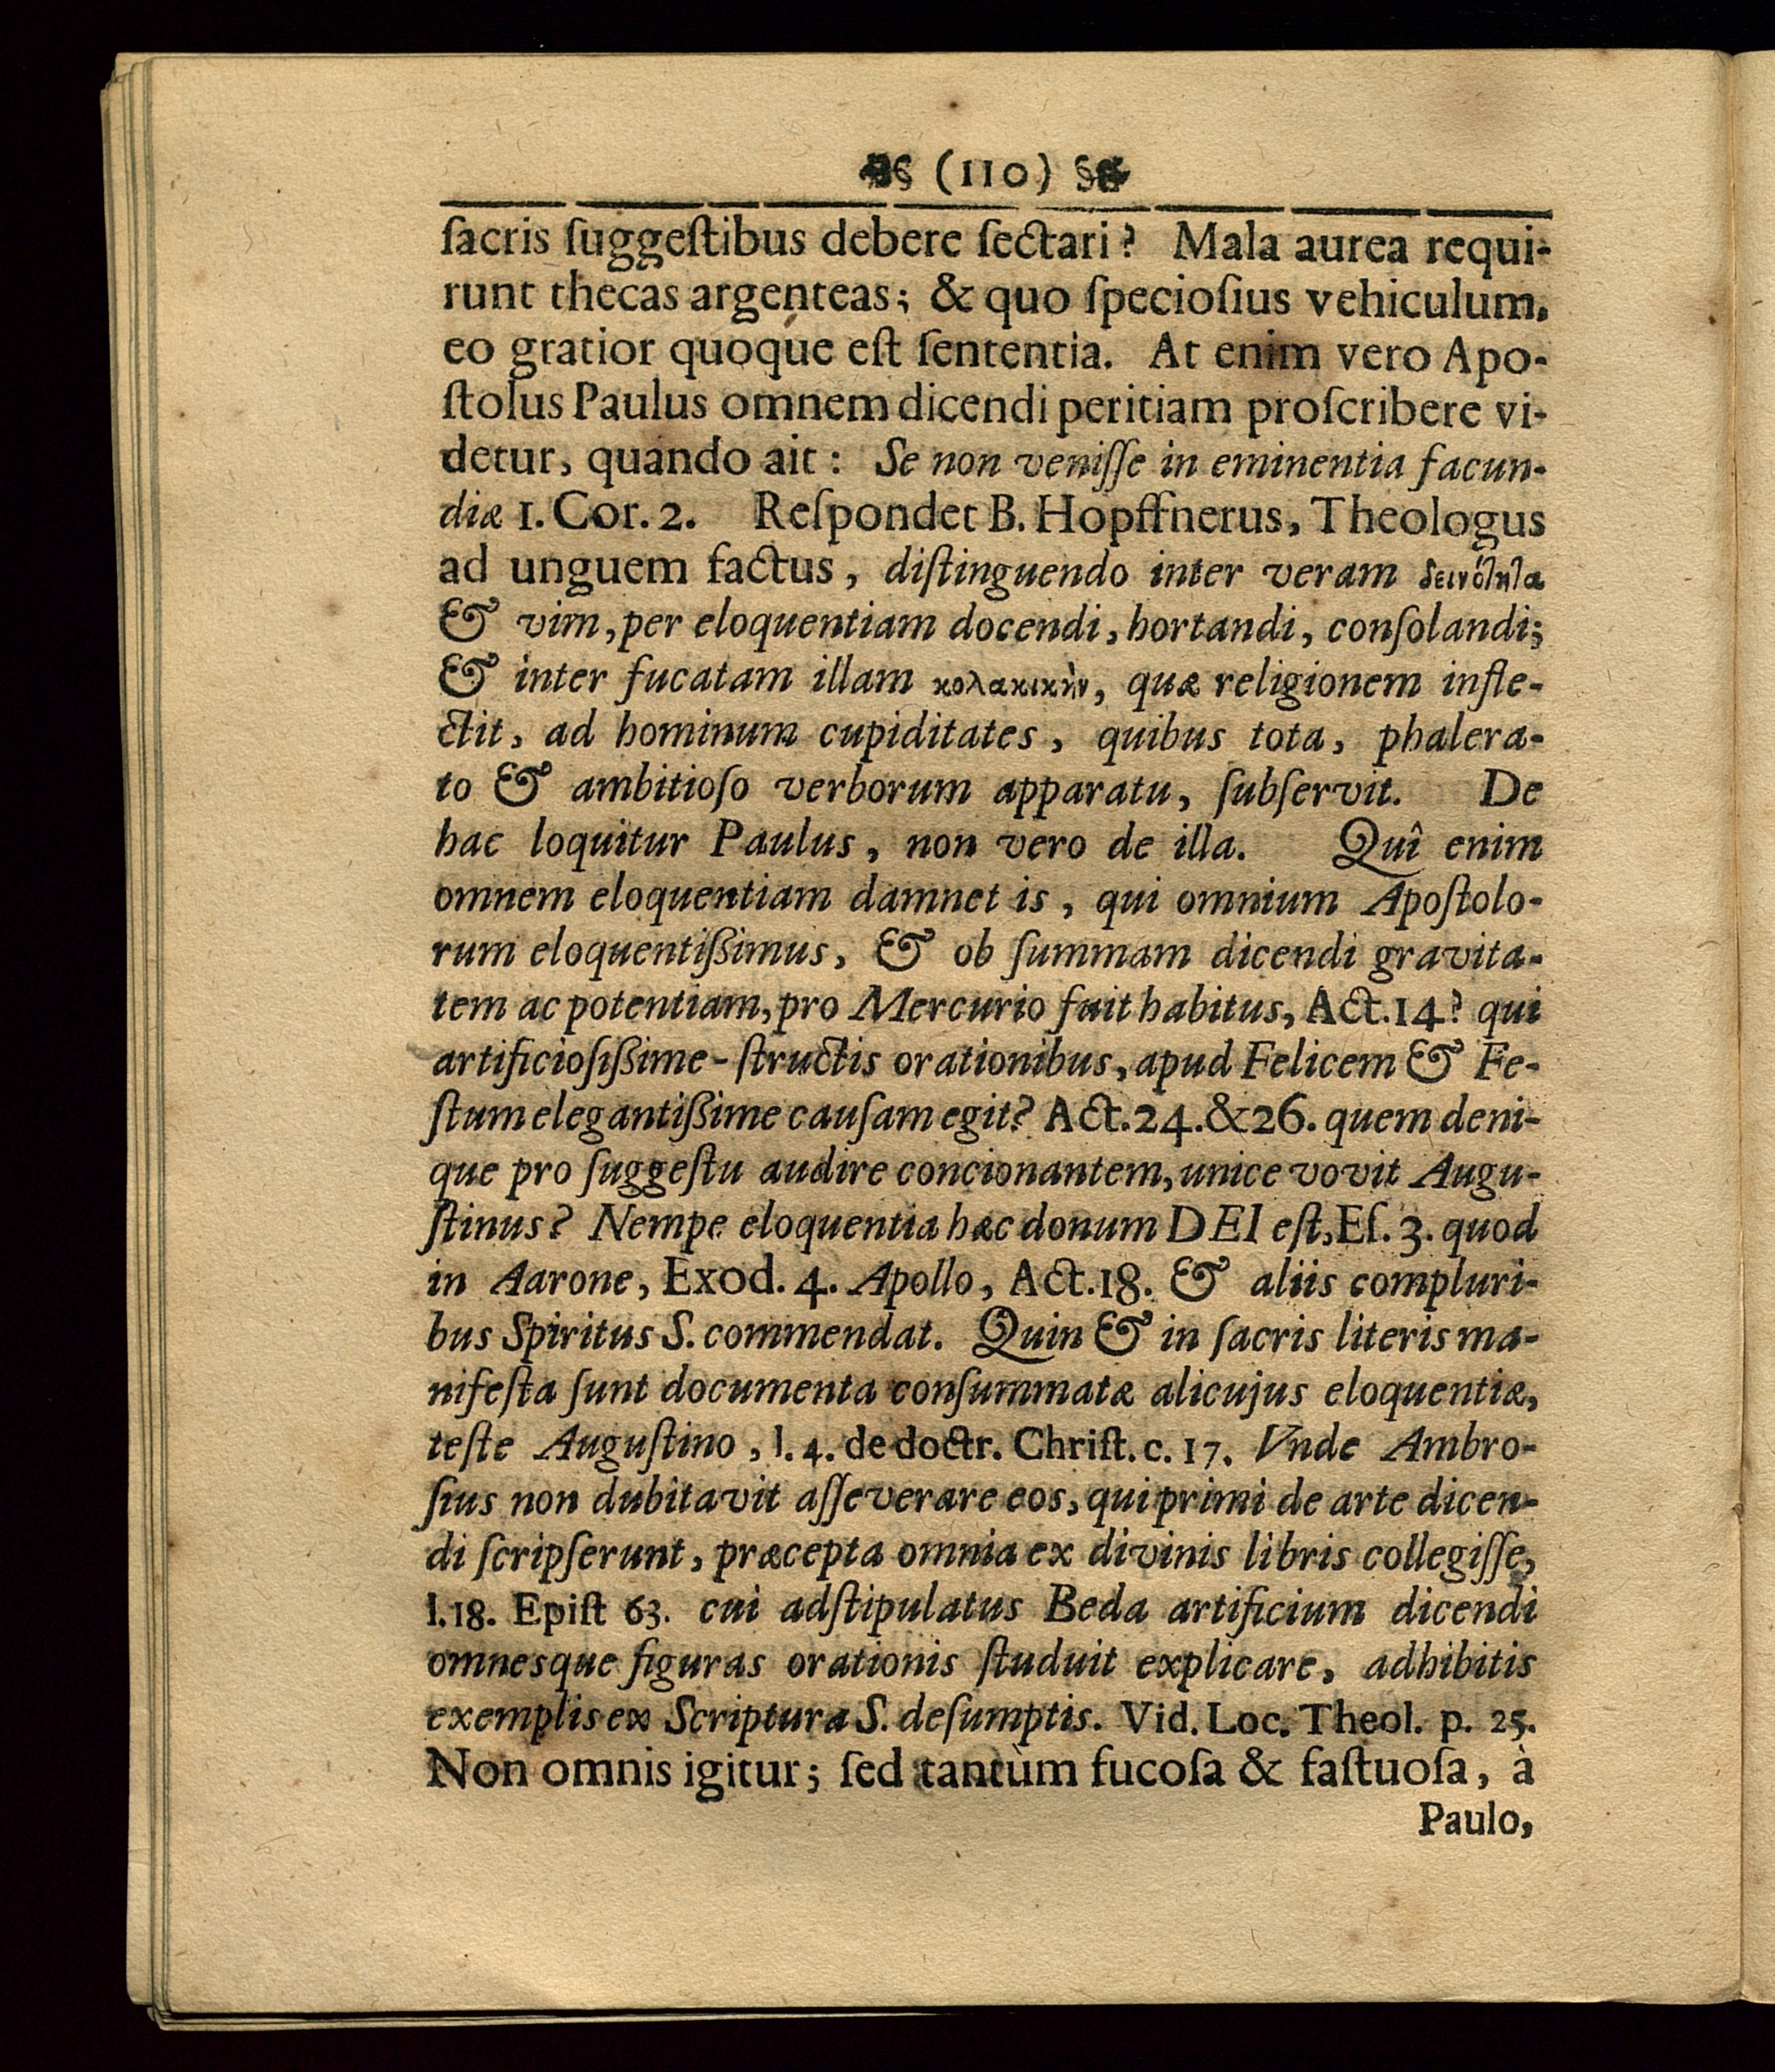 (110)
ſacris ſuggeſtibus debere ſectari? Mala aurea requi-
runt thecas argenteas; & quo ſpecioſius vehiculum,
eo gratior quoque eſt ſententia. At enim vero Apo-
ſtolus Paulus omnem dicendi peritiam proſcribere vi-
detur, quando ait: Se non veniſſe in eminentia facun-
diæ 1. Cor. 2. Reſpondet B. Hopffnerus, Theologus
ad unguem factus, diſtinguendo inter veram δεινότητα
& vim, per eloquentiam docendi, hortandi, conſolandi;
& inter fucatam illam κολακικὴν, quæ religionem infle-
ctit, ad hominum cupiditates, quibus tota, phalera-
to & ambitioſo verborum apparatu, ſubſervit. De
hac loquitur Paulus, non vero de illa. Quî enim
omnem eloquentiam damnet is, qui omnium Apoſtolo-
rum eloquentißimus, & ob ſummam dicendi gravita-
tem ac potentiam, pro Mercurio fuit habitus, Act. 14? qui
artificioſißime-ſtructis orationibus, apud Felicem & Fe-
ſtum elegantißime cauſam egit? Act. 24. & 26. quem deni-
que pro ſuggeſtu audire concionantem, unice vovit Augu-
ſtinus? Nempe eloquentia hæc donum DEI eſt, Eſ. 3. quod
in Aarone, Exod. 4. Apollo, Act. 18. & aliis compluri-
bus Spiritus S. commendat. Quin & in ſacris literis ma-
nifeſta ſunt documenta conſummatæ alicujus eloquentiæ,
teſte Auguſtino, l. 4. de doctr. Chriſt. c. 17. Vnde Ambro-
ſius non dubitavit aſſeverare eos, qui primi de arte dicen-
di ſcripſerunt, præcepta omnia ex divinis libris collegiſſe,
l. 18. Epiſt 63. cui adſtipulatus Beda artificium dicendi
omnesque figuras orationis ſtuduit explicare, adhibitis
exemplis ex Scriptura S. deſumptis. Vid. Loc. Theol. p. 25.
Non omnis igitur; ſed tantùm fucoſa & faſtuoſa, à
Paulo,